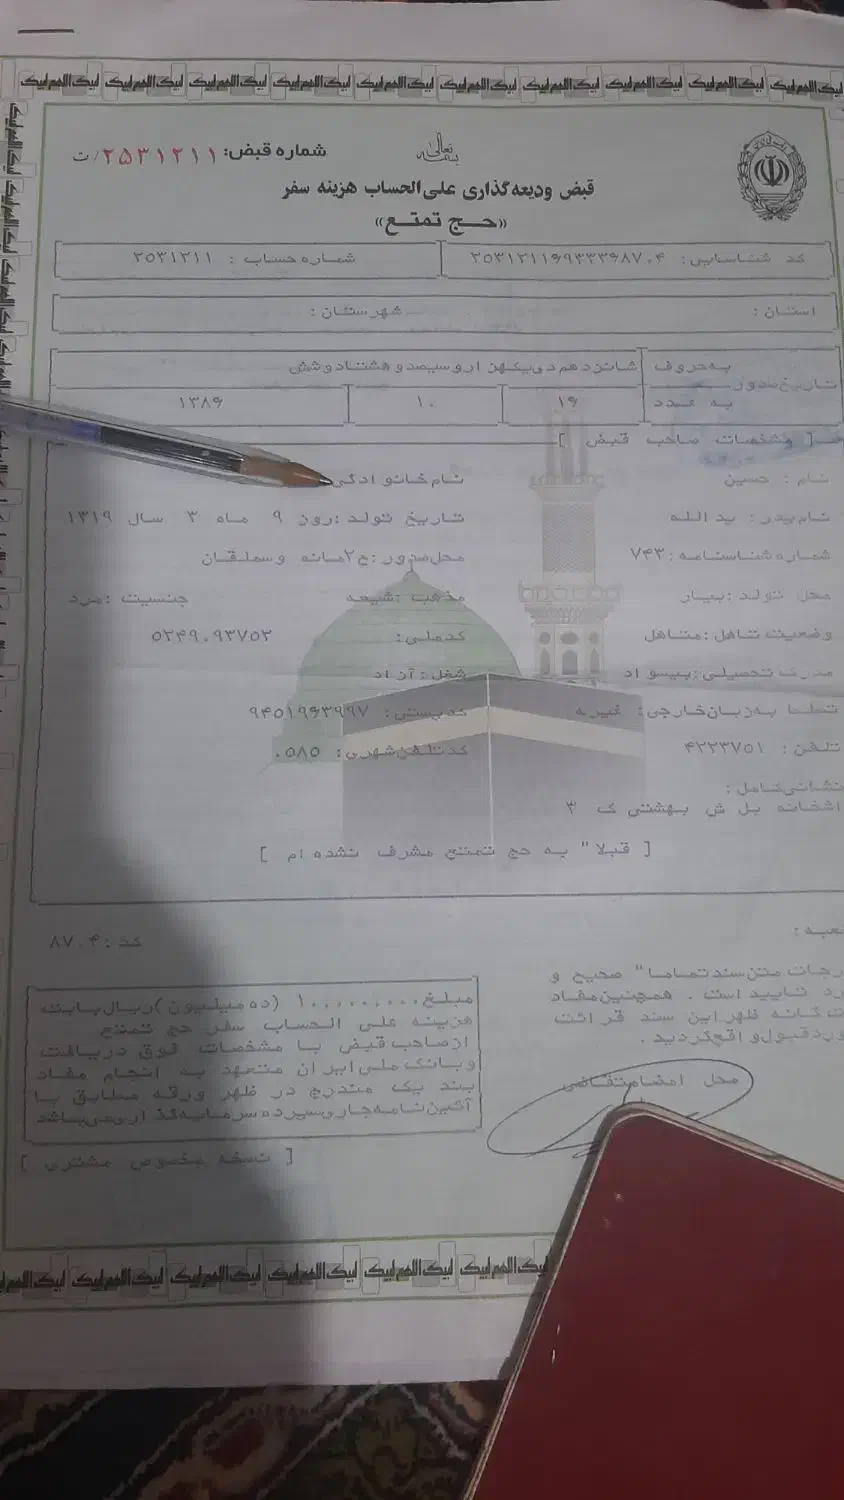 لبیک اللهم لبیک لبیک اللهم لبیک لبیک اللهم لبیک لبیک اللهم لبیک لبیک اللهم لبیک لبیک اللهم لبیک لبیک اللهم لبیک لبیک اللهم لبیک لبیک اللهم لبیک لبیک اللهم لبیک
بسمه تعالی
شماره قبض: ۲۵۳۱۲۱۱/ت
قبض ودیعه گذاری علی الحساب هزینه سفر
«حج تمتع»
کد شناسایی: ۲۵۳۱۲۱۱۶۹۳۳۳۶۸۷۰۴ شماره حساب : ۲۵۳۱۲۱۱
استان: شهرستان:
تاریخ صدور به حروف شانزدهم دی یکهزار و سیصد و هشتاد و شش
به عدد ۱۶ ۱۰ ۱۳۸۶
[ مشخصات صاحب قبض ]
نام : حسین نام خانوادگی
نام پدر: ید الله تاریخ تولد :روز ۹ ماه ۳ سال ۱۳۱۹
شماره شناسنامه:۷۴۳ محل صدور:ح۲مانه و سملقان
محل تولد :بیار مذهب :شیعه جنسیت :مرد
وضعیت تاهل :متاهل کدملی: ۵۲۴۹۰۹۳۷۵۳
مدرک تحصیلی:بیسواد شغل: آزاد
تسلط به زبان خارجی: غیره کدپستی: ۹۴۵۱۹۶۳۹۹۷
تلفن: ۴۲۲۳۷۵۱ کدتلفن شهری: ۰۵۸۵
نشانی کامل :
اشخانه بل ش بهشتی ک ۳
[ قبلا" به حج تمتع مشرف نشده ام ]
شعبه : کد :۸۷۰۴
متن سند تماما" صحیح و
تایید است . همچنین مفاد
گانه ظهر این سند قرائت
مورد قبول واقع گردید .
محل امضا متقاضی
مبلغ ۱۰,۰۰۰,۰۰۰ (ده میلیون) ریال بابت
هزینه علی الحساب سفر حج تمتع
از صاحب قبض با مشخصات فوق دریافت
و بانک ملی ایران متعهد به انجام مفاد
بند یک مندرج در ظهر ورقه مطابق با
آئین نامه جاری سپرده سرمایه گذاری می باشد
[ نسخه مخصوص مشتری ]
لبیک اللهم لبیک لبیک اللهم لبیک لبیک اللهم لبیک لبیک اللهم لبیک لبیک اللهم لبیک لبیک اللهم لبیک